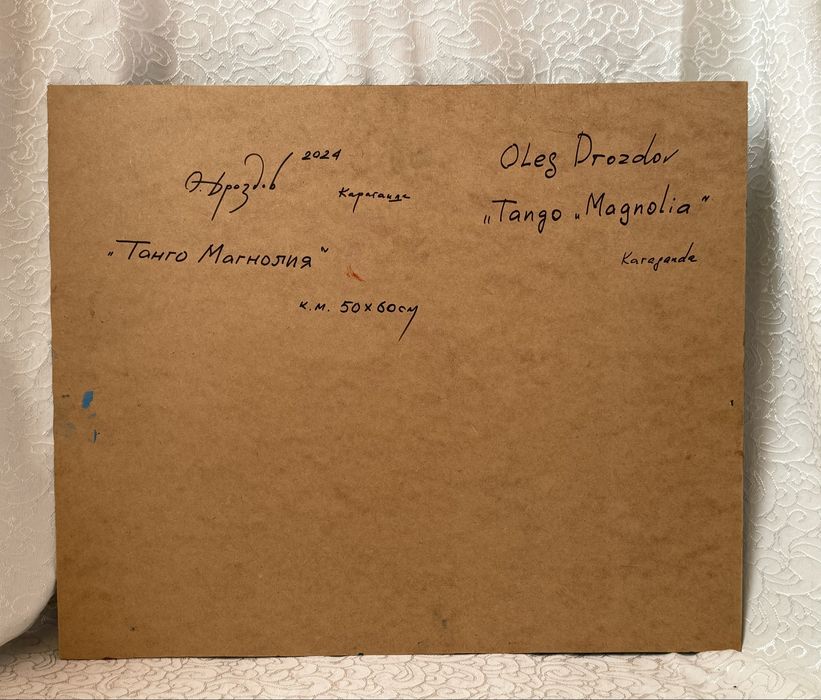 О. Дроздов 2024
Караганда
„Танго Магнолия"
к.м. 50х60см
Oleg Drozdov
„Tango „Magnolia"
Karaganda